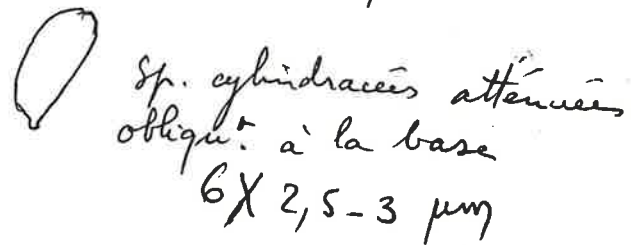 Sp. cylindracées atténuées
obliqu.t à la base
6 X 2,5-3 µm